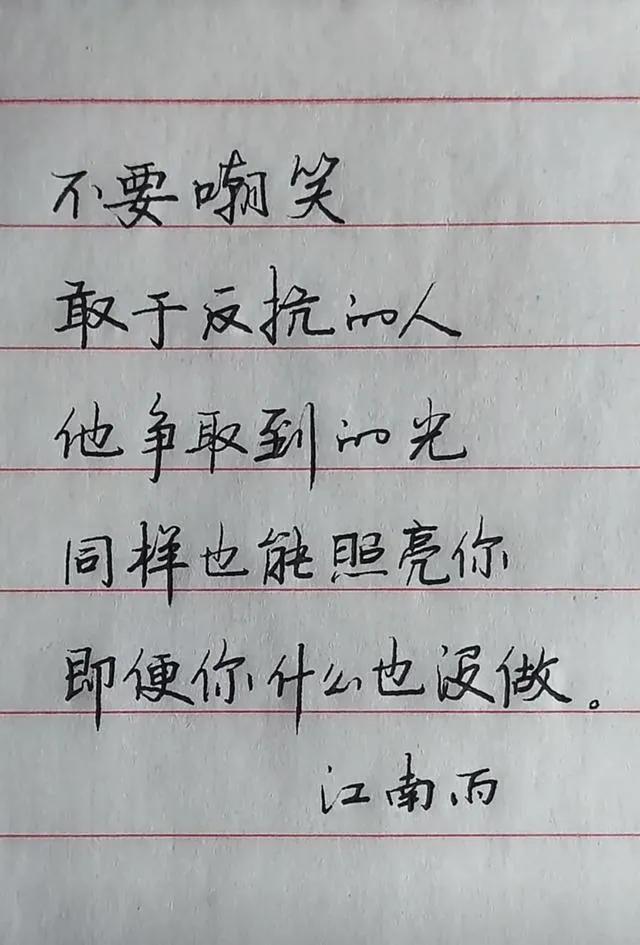 不要嘲笑
敢于反抗的人
他争取到的光
同样也能照亮你
即便你什么也没做。
江南雨